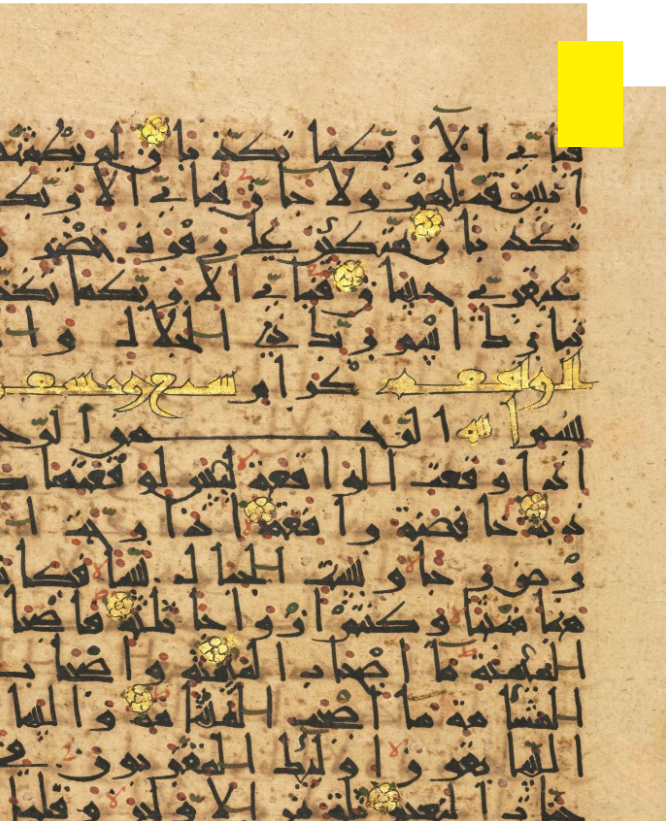 فبأي الا ربكما تكذبان لم يطمثهن
انس قبلهم ولا جان فبأي الا ربك
تكذبان متكئين على رفرف خضر و
عبقري حسان فبأي الا ربكما تكذ
تبارك اسم ربك ذي الجلال والا
الواقعة كرام سبع وتسعو
بسم الله الرحمن الرح
اذا وقعت الواقعة ليس لوقعتها كا
ذبة خافضة رافعة اذا رجت ا
رض رجا وبست الجبال بسا فكانت
هباء منبثا وكنتم ازواجا ثلثة فاصحا
الميمنة ما اصحاب الميمنة واصحاب
المشأمة ما اصحب المشأمة والسا
السابقون اولئك المقربون في
جنات النعيم ثلة من الاولين وقليل